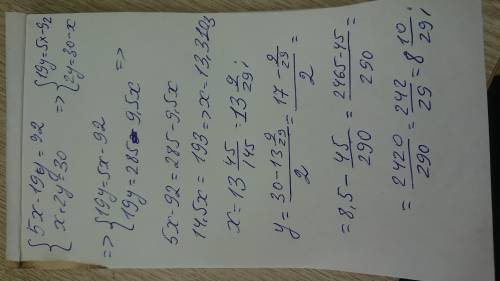 {5x-19y=92 {19y=5x-92
x+2y=30 => {2y=30-x
=> {19y=5x-92 =>
{19y=285-9,5x
5x-92=285-9,5x
14.5x=193=>x=13,3103
x=13 45/145=13 9/29;
y=(30-13 9/29)/2=(17-9/29)/2=
=8,5-45/290=(2465-45)/290=
=2420/290=242/29=8 10/29;